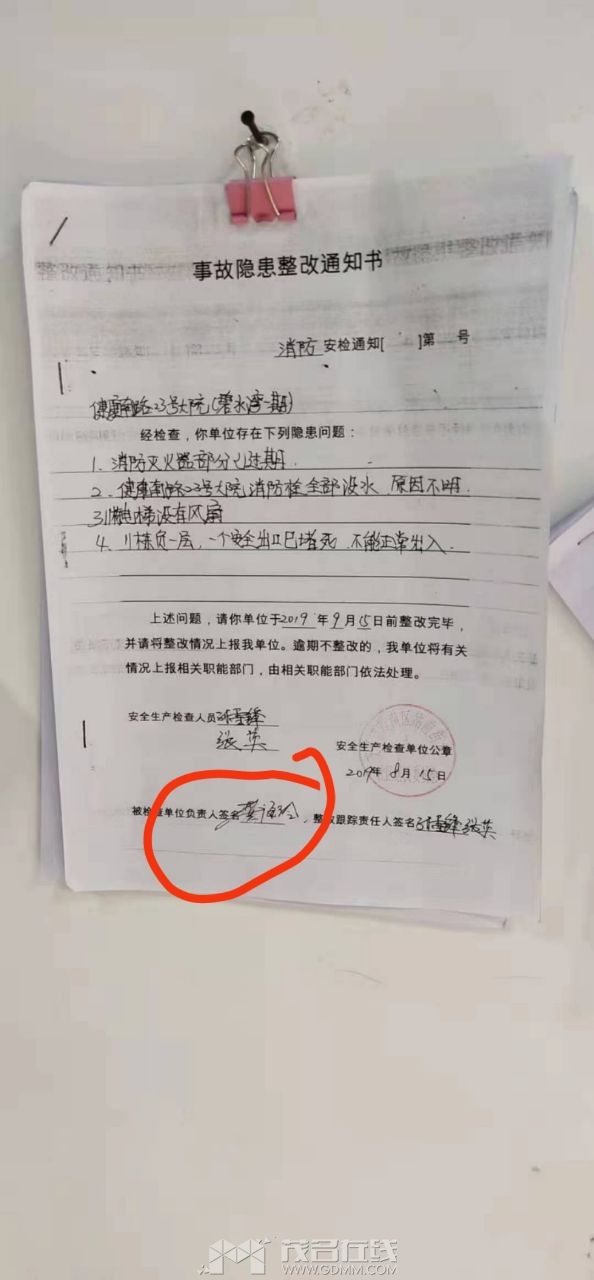 事故隐患整改通知书
消防安检通知[ ]第 号
健康南路23号大院(碧水湾一期)
经检查，你单位存在下列隐患问题：
1. 消防灭火器部分已过期.
2. 健康南路23号大院消防栓全部没水 原因不明.
3 11栋电梯没有风扇
4. 11栋负一层，一个安全出口已堵死 不能正常出入.
上述问题，请你单位于2019年9月15日前整改完毕，
并请将整改情况上报我单位。逾期不整改的，我单位将有关
情况上报相关职能部门，由相关职能部门依法处理。
安全生产检查人员
张英
安全生产检查单位公章
2019年8月15日
被检查单位负责人签名 ，整改跟踪责任人签名 张英
茂名在线
WWW.GDMM.COM